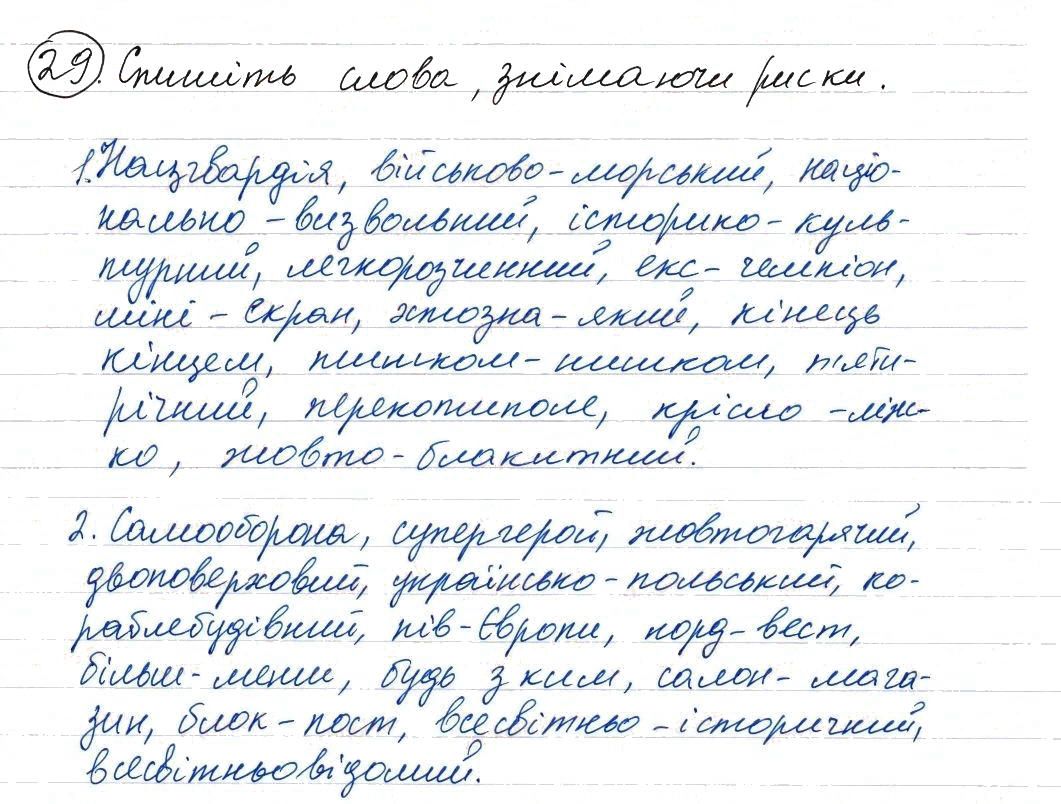 29. Спишіть слова, знімаючи риски.
1. Нацгвардія, військово-морський, націо-
нально-визвольний, історико-куль-
турний, легкорозчинний, екс-чемпіон,
міні-екран, хтозна-який, кінець
кінцем, пишком-нишком, п'яти-
річний, перекотиполе, крісло-ліж-
ко, жовто-блакитний.
2. Самооборона, супергерой, жовтогарячий,
двоповерховий, українсько-польський, ко-
раблебудівний, пів-Європи, норд-вест,
більш-менш, будь з ким, салон-мага-
зин, блок-пост, всесвітньо-історичний,
всесвітньовідомий.